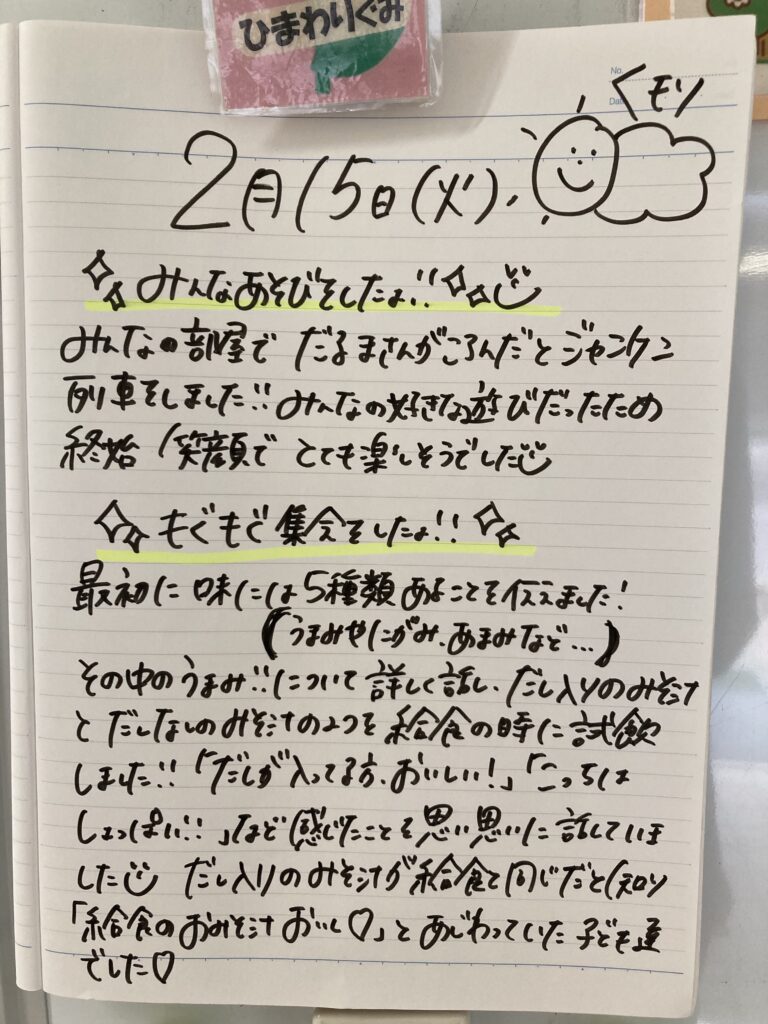 ひまわりぐみ
No.
Date
くモリ
2月15日(火).
みんなあそびをしたよ!!
みんなの部屋で だるまさんがころんだとジャンケン
列車をしました!! みんなの好きな遊びだったため
終始 笑顔で とても楽しそうでした
もぐもぐ集会をしたよ!!
最初に味には5種類あることを伝えました!
(うまみやにがみ、あまみなど...)
その中のうまみ!!について詳しく話し、だし入りのみそ汁
とだしなしのみそ汁の2つを給食の時に試飲
しました!!「だしが入ってる方、おいしい!」「こっちは
しょっぱい!!」など感じたことを思い思いに話していま
した だし入りのみそ汁が給食と同じだと知り
「給食のおみそ汁おいし♡」とあじわっていた子ども達
でした♡